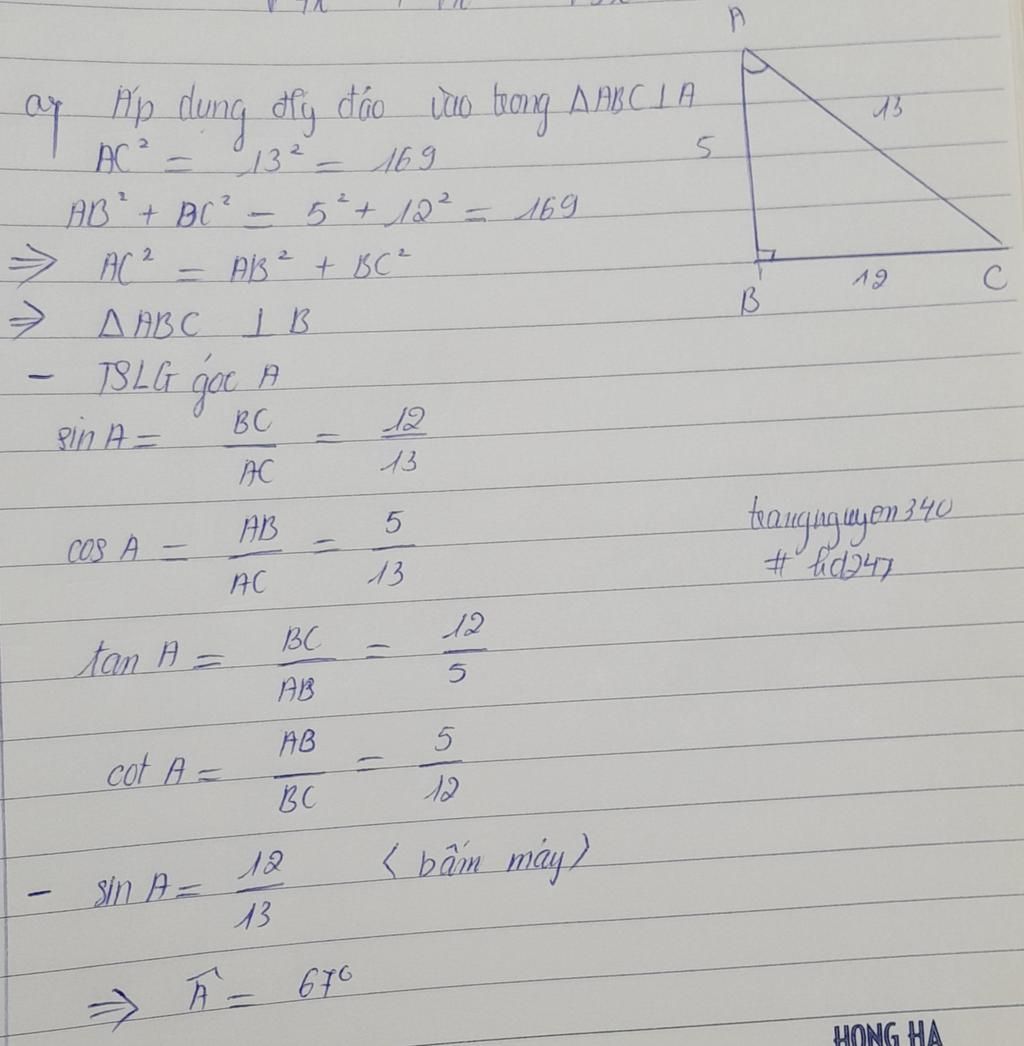 a, Áp dụng đlý đảo vào trong ΔABC⊥A
AC² = 13² = 169
AB² + BC² = 5² + 12² = 169
⇒ AC² = AB² + BC²
⇒ ΔABC ⊥ B
- TSLG góc A
sin A = BC/AC = 12/13
cos A = AB/AC = 5/13
tan A = BC/AB = 12/5
cot A = AB/BC = 5/12
- sin A = 12/13 (bấm máy)
⇒ Â = 67°
A
13
5
B
12
C
trangnguyen340
# hd247
HONG HA